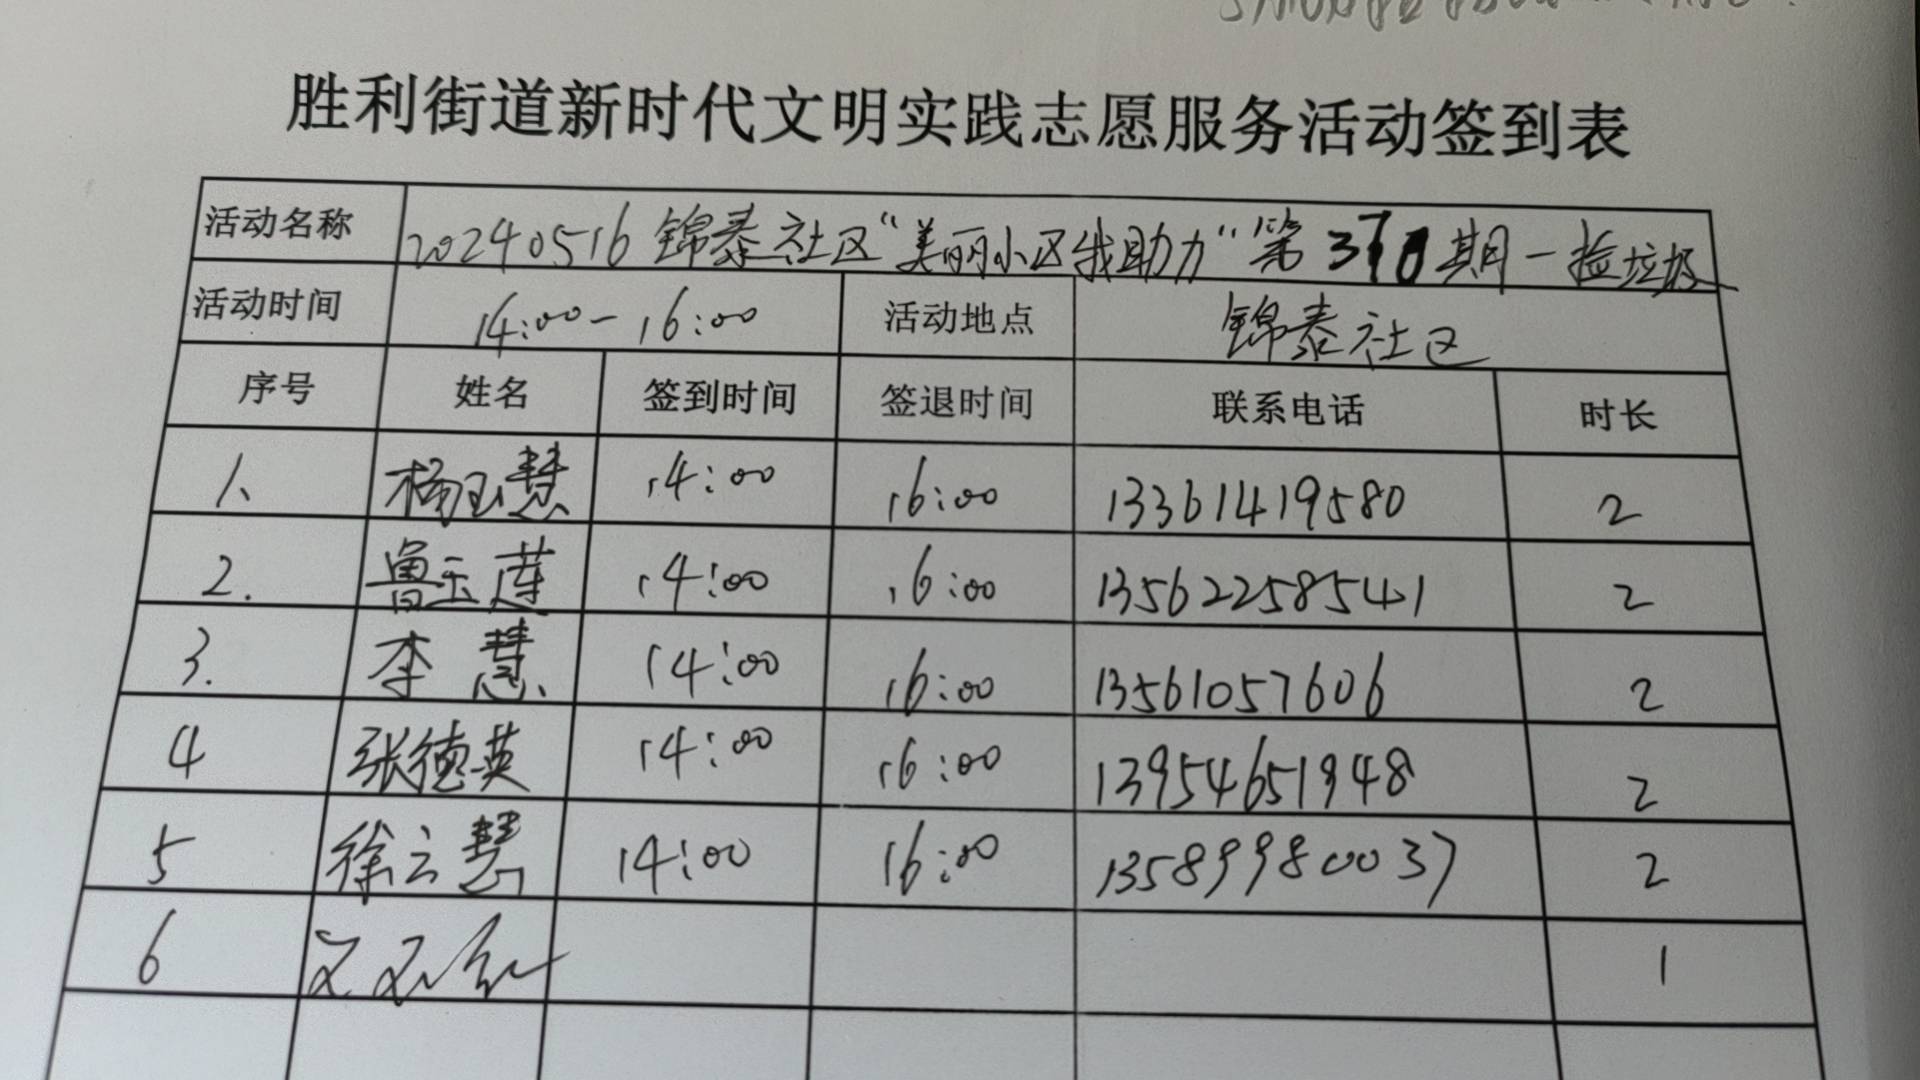 胜利街道新时代文明实践志愿服务活动签到表
活动名称 20240516锦泰社区“美丽小区我助力”第370期-捡垃圾
活动时间 14:00-16:00 活动地点 锦泰社区
序号 姓名 签到时间 签退时间 联系电话 时长
1、 杨玉慧 14:00 16:00 13361419580 2
2. 鲁玉莲 14:00 16:00 13562258541 2
3. 李慧 14:00 16:00 13561057606 2
4 张德英 14:00 16:00 13954651948 2
5 徐云慧 14:00 16:00 13589980037 2
6 1